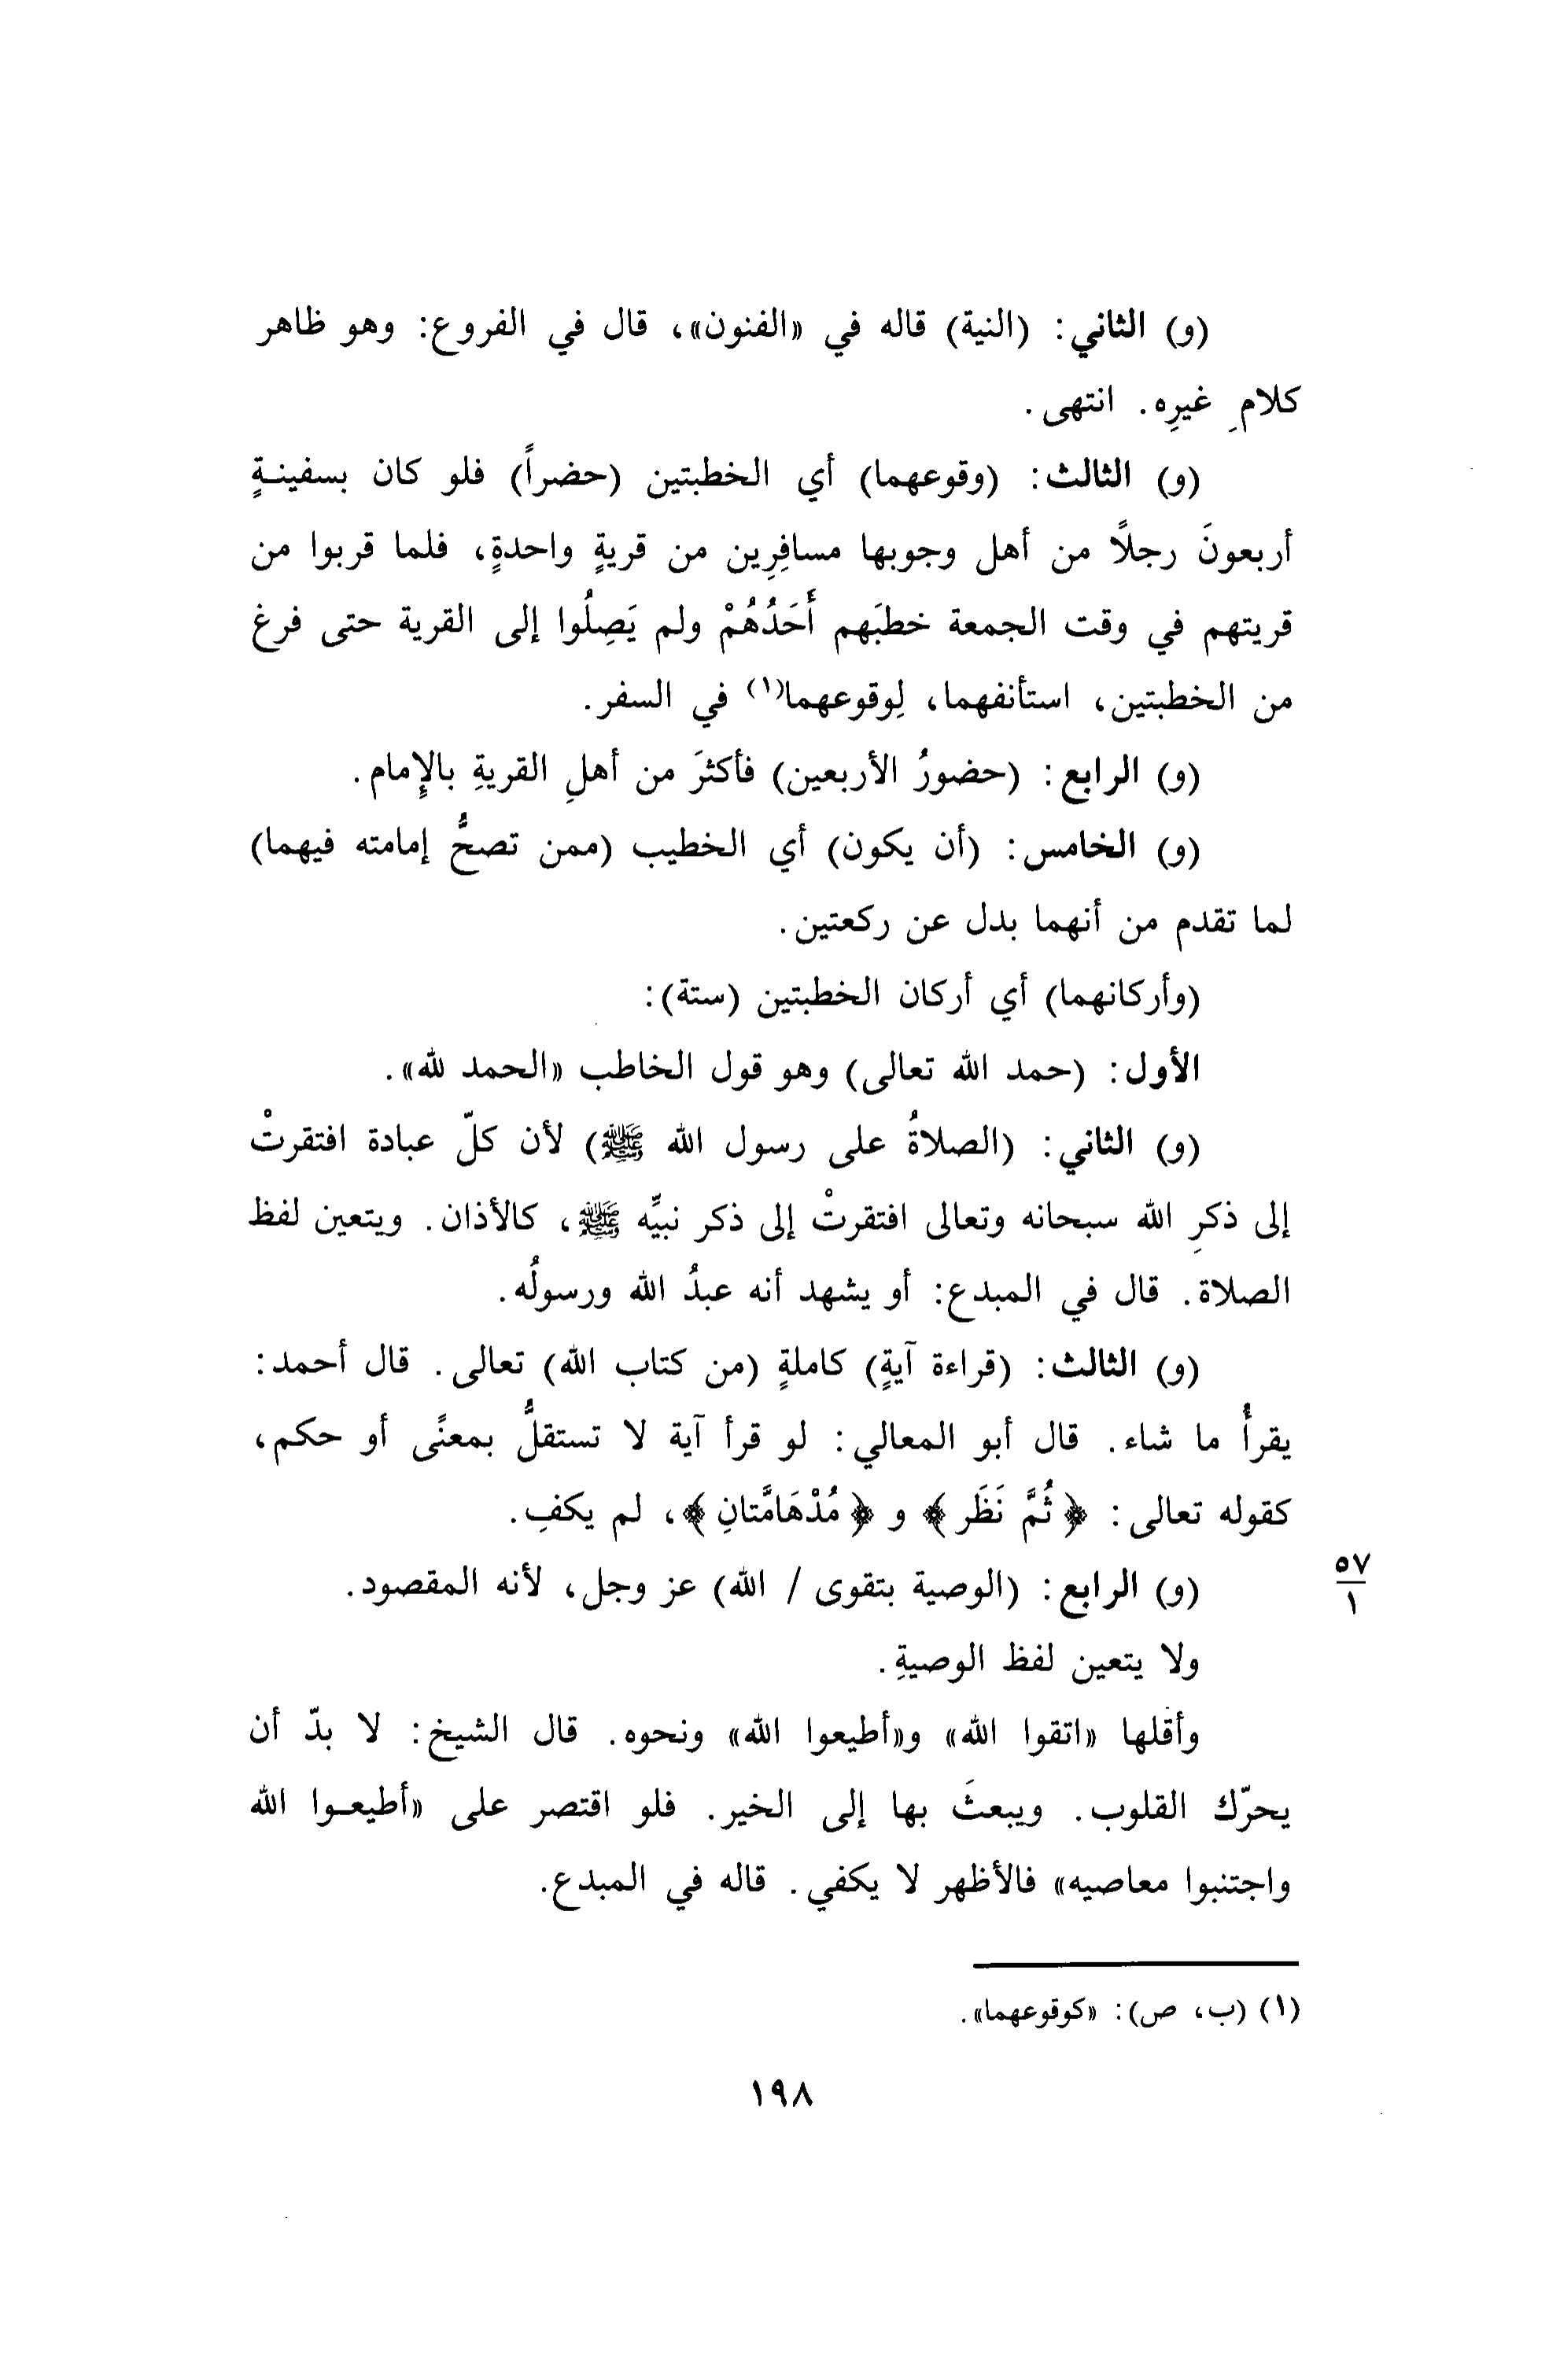 (و) الثاني: (النية) قاله في «الفنون»، قال في الفروع: وهو ظاهر
كلامِ غيرِه. انتهى.
(و) الثالث: (وقوعهما) أي الخطبتين (حضراً) فلو كان بسفينةٍ
أربعونَ رجلاً من أهل وجوبها مسافِرِين من قريةٍ واحدةٍ، فلما قربوا من
قريتهم في وقت الجمعة خطبَهم أَحَدُهُمْ ولم يَصِلُوا إلى القرية حتى فرغ
من الخطبتين، استأنفهما، لِوقوعهما(١) في السفر.
(و) الرابع: (حضورُ الأربعين) فأكثرَ من أهلِ القريةِ بالإمام.
(و) الخامس: (أن يكون) أي الخطيب (ممن تصحُّ إمامته فيهما)
لما تقدم من أنهما بدل عن ركعتين.
(وأركانهما) أي أركان الخطبتين (ستة):
الأول: (حمد الله تعالى) وهو قول الخاطب «الحمد لله».
(و) الثاني: (الصلاةُ على رسول الله ﷺ) لأن كلّ عبادة افتقرتْ
إلى ذكرِ الله سبحانه وتعالى افتقرتْ إلى ذكر نبيِّه ﷺ، كالأذان. ويتعين لفظ
الصلاة. قال في المبدع: أو يشهد أنه عبدُ الله ورسولُه.
(و) الثالث: (قراءة آيةٍ) كاملةٍ (من كتاب الله) تعالى. قال أحمد:
يقرأُ ما شاء. قال أبو المعالي: لو قرأ آية لا تستقلُّ بمعنًى أو حكم،
كقوله تعالى: ﴿ثُمَّ نَظَر﴾ و ﴿مُدْهَامَّتانِ﴾، لم يكفِ.
(و) الرابع: (الوصية بتقوى / الله) عز وجل، لأنه المقصود.
٥٧
١
ولا يتعين لفظ الوصيةِ.
وأقلها «اتقوا الله» و«أطيعوا الله» ونحوه. قال الشيخ: لا بدّ أن
يحرّك القلوب. ويبعثَ بها إلى الخير. فلو اقتصر على «أطيعـوا الله
واجتنبوا معاصيه» فالأظهر لا يكفي. قاله في المبدع.
(١) (ب، ص): «كوقوعهما».
١٩٨